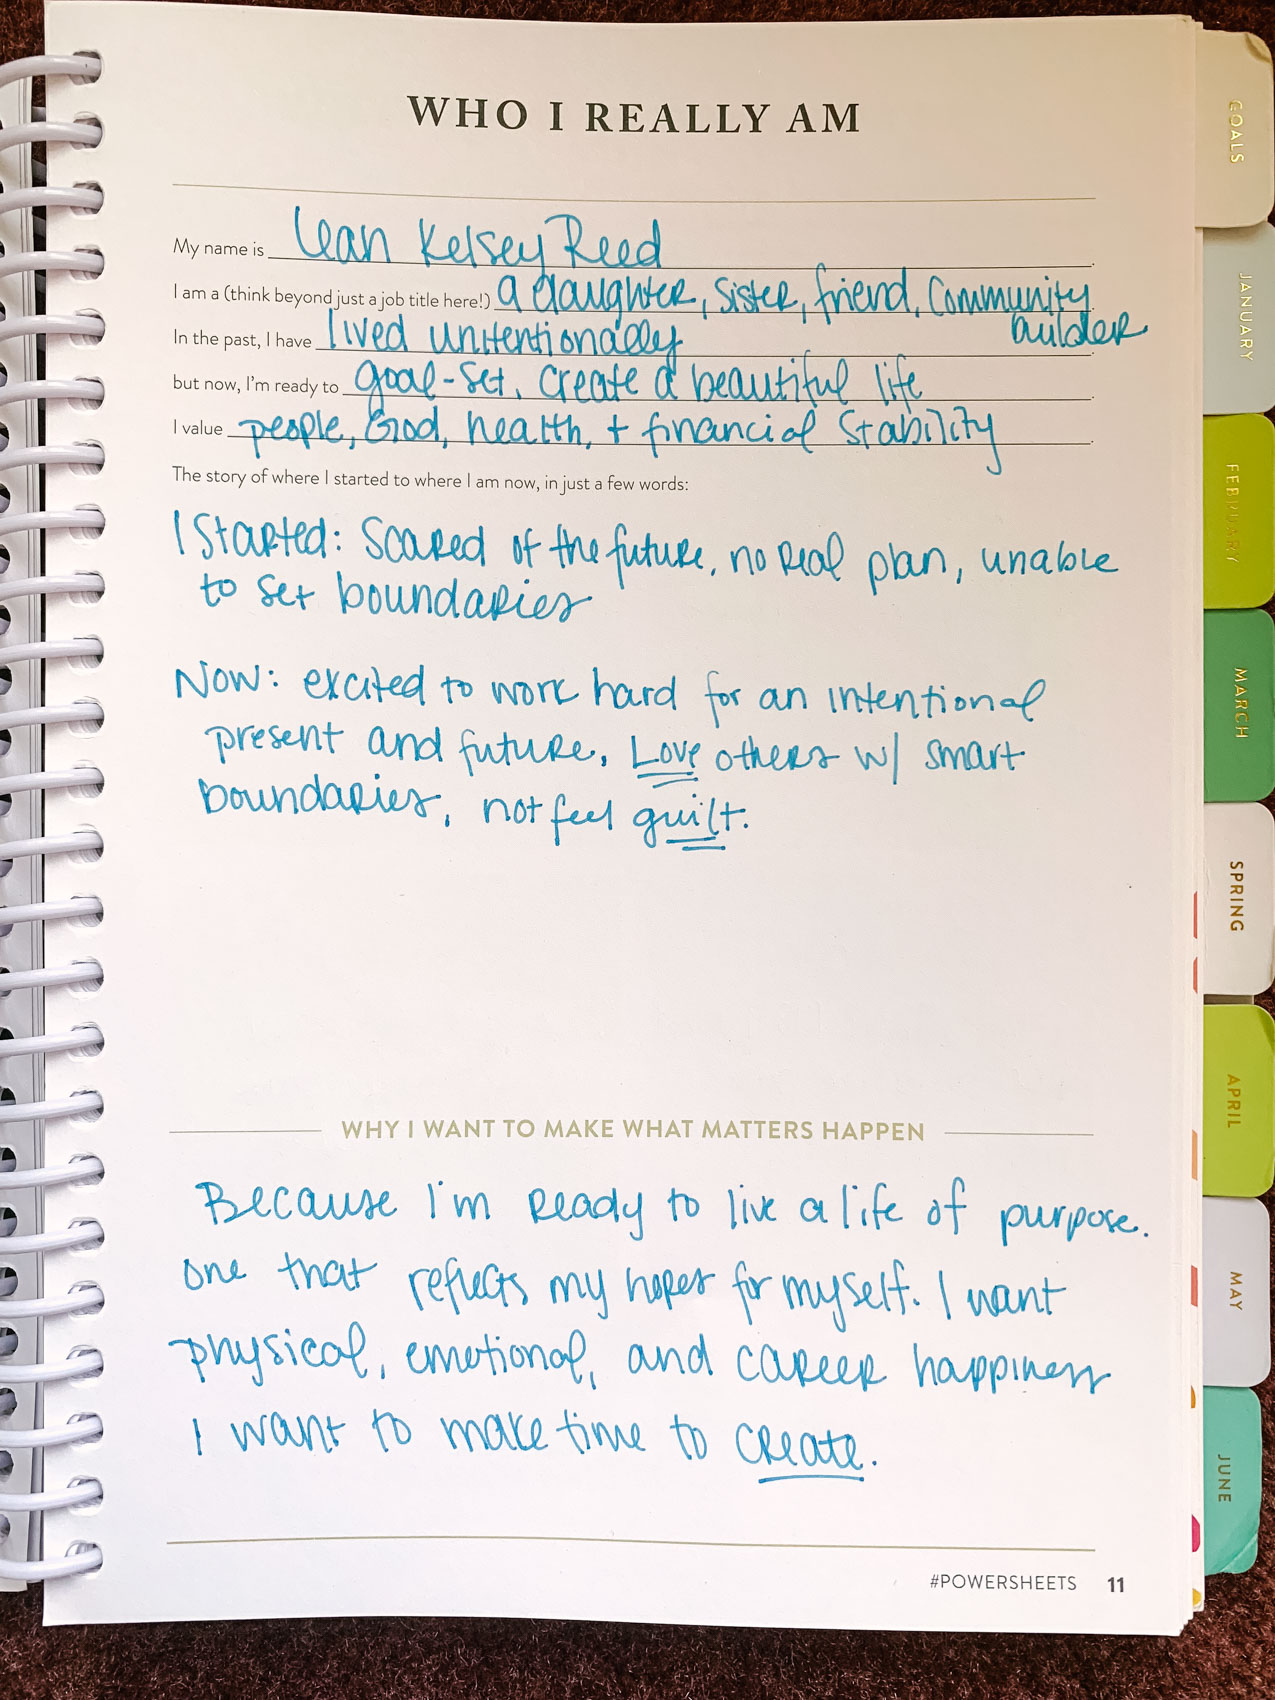 WHO I REALLY AM
My name is Leah Kelsey Reed.
I am a (think beyond just a job title here!) a daughter, sister, friend, community
builder
In the past, I have lived unitentionally.
but now, I'm ready to goal-set, create a beautiful life.
I value people, God, health, + financial stability.
The story of where I started to where I am now, in just a few words:
I started: Scared of the future, no real plan, unable
to set boundaries
Now: excited to work hard for an intentional
present and future, Love others w/ smart
boundaries, not feel guilt.
WHY I WANT TO MAKE WHAT MATTERS HAPPEN
Because I'm ready to live a life of purpose.
one that reflects my hopes for myself. I want
physical, emotional, and career happiness
I want to make time to create.
#POWERSHEETS 11
GOALS
JANUARY
FEBRUARY
MARCH
SPRING
APRIL
MAY
JUNE